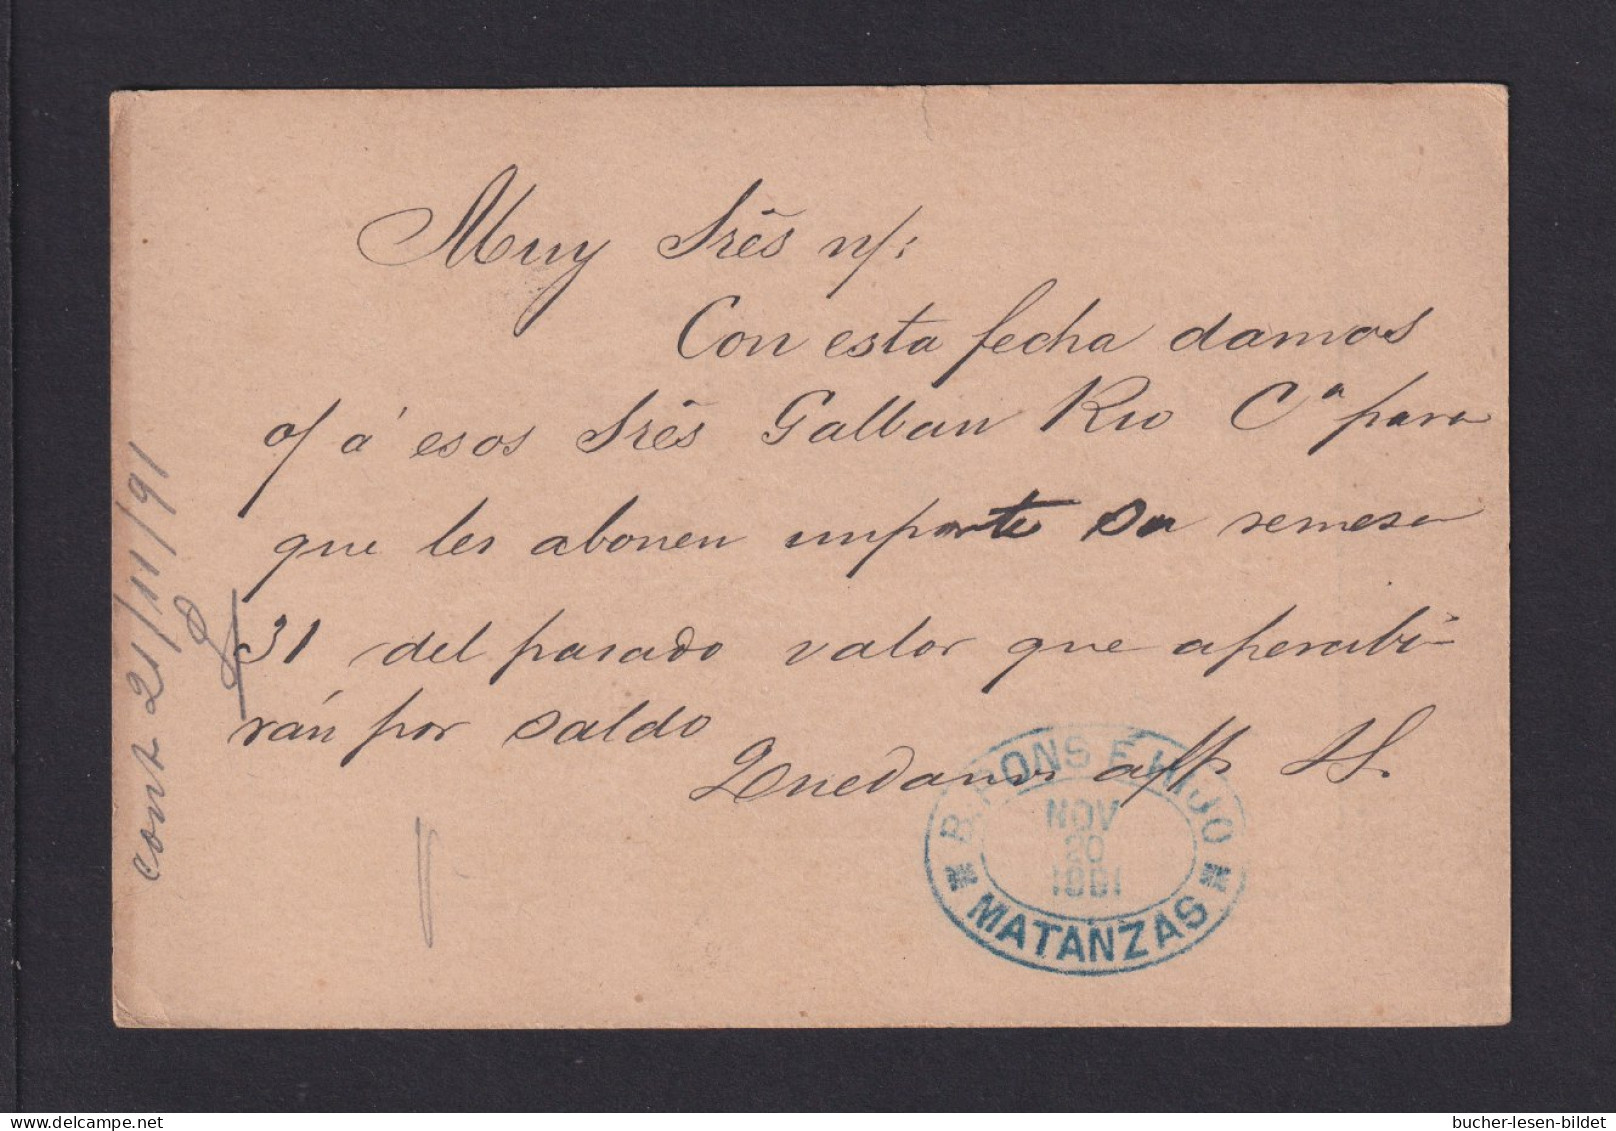 Muy Srēs n/:
Con esta fecha damos
o/ á esos Srēs Galban Rio Cª para
que les abonen importe su remesa
31 del pasado valor que apercibi-
rán por saldo
Quedamos aff SS.
B. PONS É HIJO
NOV
20
1891
MATANZAS
cont 21/11/91
bucher-lesen-bildet